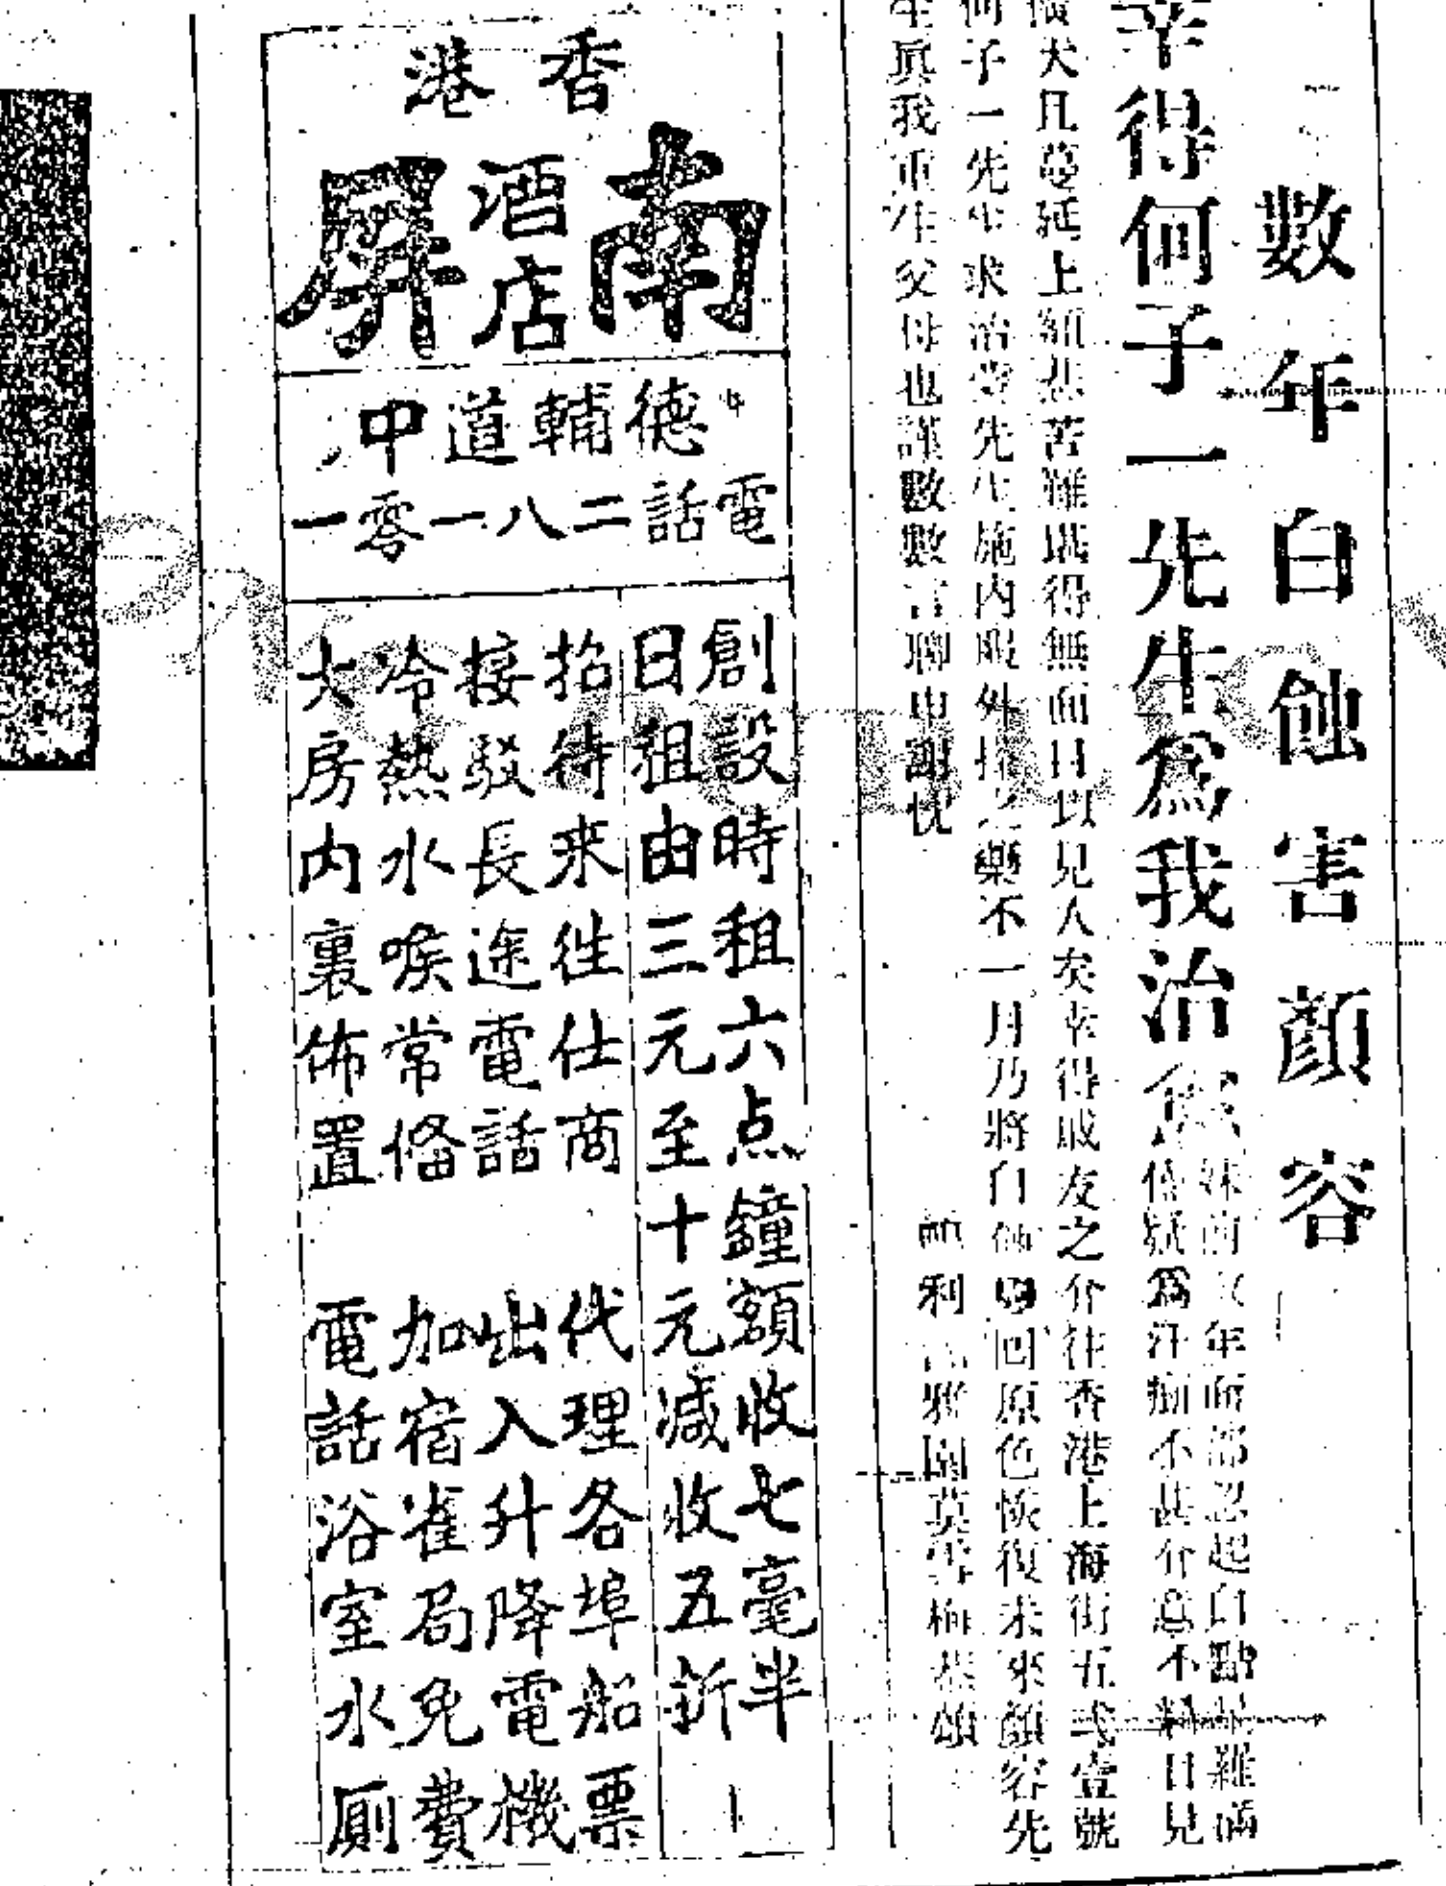 數年白蝕害顏容
幸得何子一先生為我治愈
妹前數年面部忽起白點
為汗癍不甚介意不料日見
犬且蔓延上額悲苦難堪得無面目以見人矣幸得戚友之介往香港上海街五弍壹號
何子一先生求治蒙先生施內服外搽之藥不一月乃將白蝕回原色恢復未來顏容先
生真我重生父母也謹數數言聊申謝忱
利雅園莫雪梅恭頌
香港
南屏
酒店
德輔道中
電話二八一零一
創設時租六点鐘額收七毫半
日租由三元至十元減收五折
招待来往仕商 代理各埠船票
接駁長途電話 出入升降電機
冷熱水喉常俻 加宿雀局免費
大房內裏佈置 電話浴室水厠